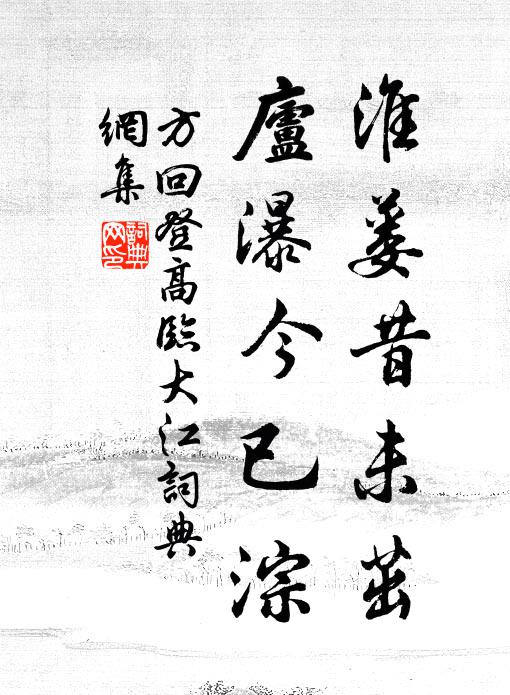 淮蔞昔未茁
廬瀑今已淙
方回登高臨大江詞典
網集
詞典网印